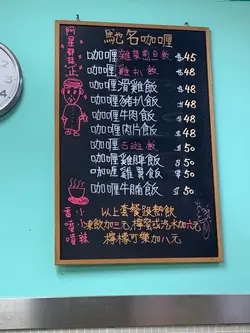 馳名咖喱
咖喱雜菜煎旦飯 $45
咖喱雞扒飯 $48
咖喱滑雞飯 $48
咖喱豬扒飯 $48
咖喱牛肉飯 $48
咖喱肉片飯 $48
咖喱石斑飯 $50
咖喱雞髀飯 $50
咖喱雞翼飯 $50
咖喱牛腩飯 $50
以上套餐跟熱飲
凍飲加三元 檸蜜或汽水加六元
檸檬可樂加八元
香噴噴